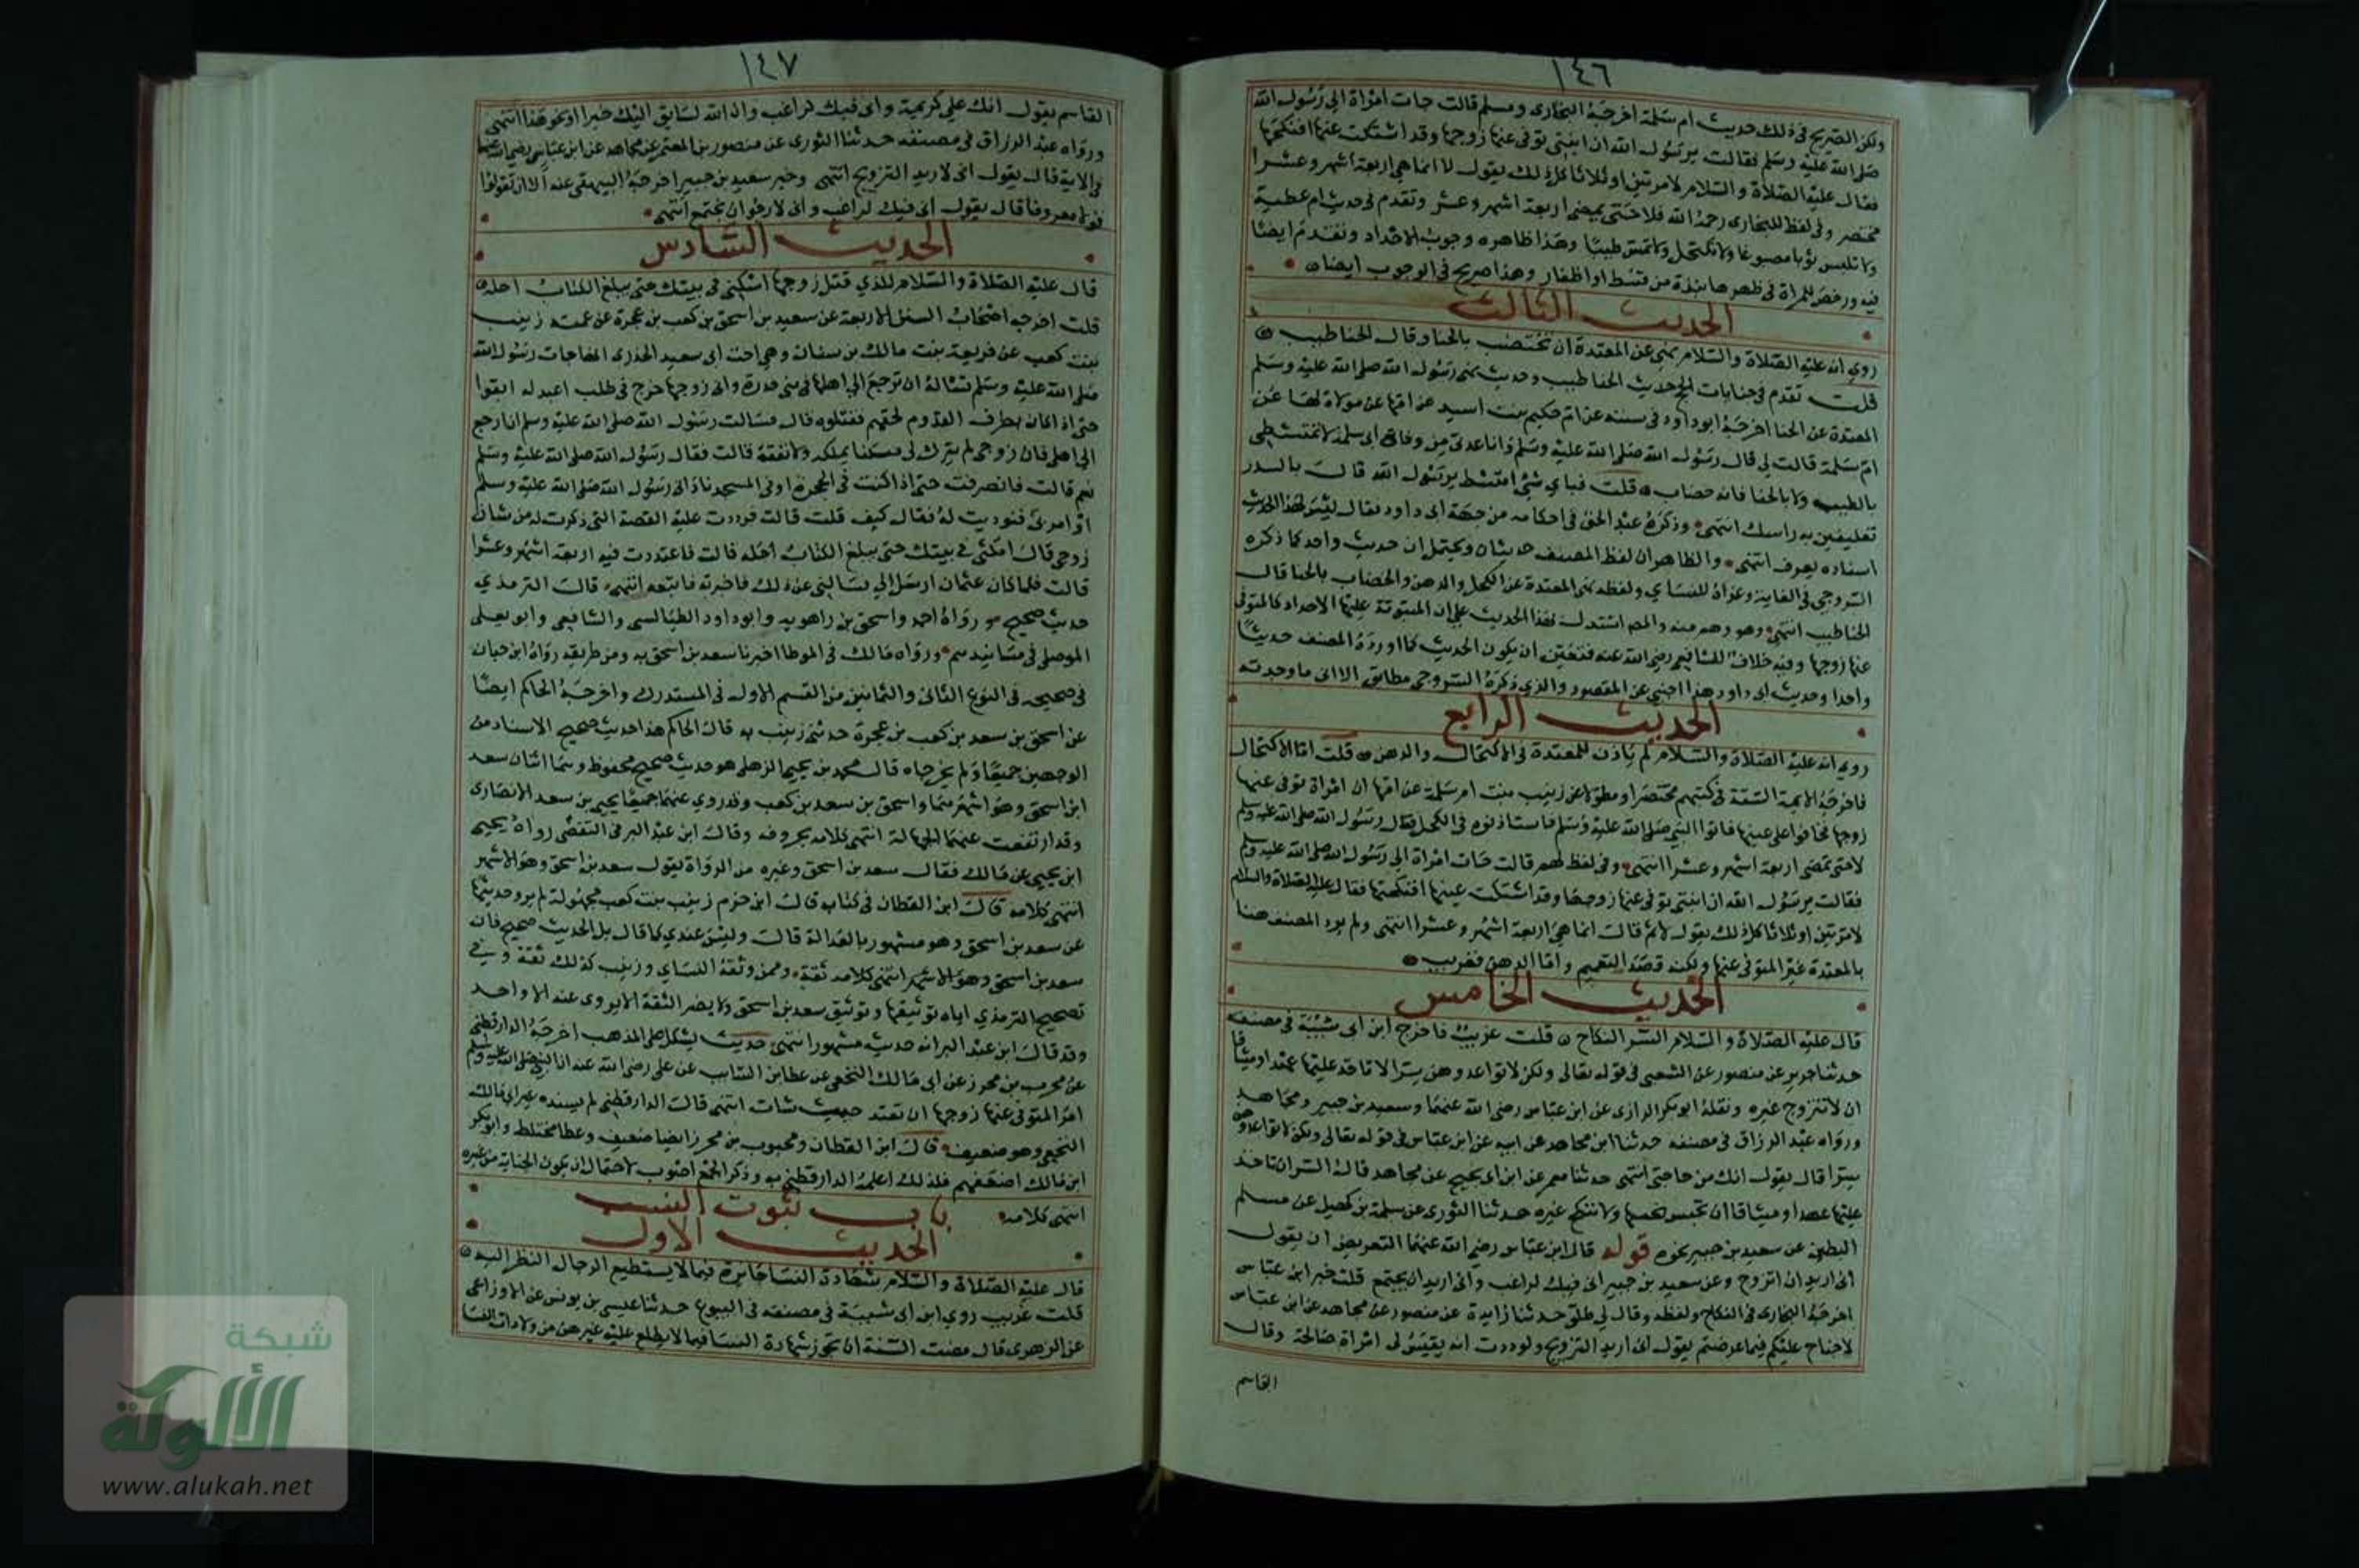 ١٤٦
ولكن الصريح في ذلك حديث ام سلمة اخرجه البخاري ومسلم قالت جات امراة الي رسول الله
صلي الله عليه وسلم فقالت يرسول الله ان ابنتي توفي عنها زوجها وقد اشتكت عنها افنكحلها
فقال عليه الصلاة والسلام لا مرتين او ثلاثا كل ذلك يقول لا انما هي اربعة اشهر وعشرا
مختصر وفي لفظ للبخاري رحمه الله فلا حتي يمضي اربعة اشهر وعشر وتقدم في حديث ام عطية
ولا تلبس ثوبا مصبوغا ولا تكتحل ولا تمس طيبا وهذا ظاهره وجوب الاحداد وتقدم ايضا
فيه ورخص للمراة في طهرها نبذة من قسط او اظفار وهذا صريح في الوجوب ايضا
الحديث الثالث
روي انه عليه الصلاة والسلام نهي عن المعتدة ان تختضب بالحنا وقال الحنا طيب
قلت تقدم في جنايات الحج حديث الحنا طيب وحديث نهي رسول الله صلي الله عليه وسلم
المعتدة عن الحنا اخرجه ابو داود في سننه عن ام حكيم بنت اسيد عن امها عن مولاة لها عن
ام سلمة قالت لي قال رسول الله صلي الله عليه وسلم وانا في عدتي من وفاة ابي سلمة لا تمتشطي
بالطيب ولا بالحنا فانه خضاب قلت فباي شي امتشط يرسول الله قالت بالسدر
تغلفين به راسك انتهي وذكره عبد الحق في احكامه من جهة ابي داود فقال ليس لهذا الحديث
اسناد يعرف انتهي والظاهر ان لفظ المصنف حديثان ويحتمل ان حديث واحد كما ذكره
السروجي في الغاية وعزاه للنساي ولفظه نهي المعتدة عن الكحل والدهن والخضاب بالحنا قال
الحنا طيب انتهي وهو وهم منه والمص استدل بهذا الحديث علي ان المبتوتة عليها الاحداد كالمتوفي
عنها زوجها وفيه خلاف للشافعي رضي الله عنه فتعين ان يكون الحديث كما اورده المصنف حديثا
واحدا وحديث ابي داود هذا اجنبي عن المقصود والذي ذكره السروجي مطابق الا اني ما وجدته
الحديث الرابع
روي انه عليه الصلاة والسلام لم ياذن للمعتدة في الاكتحال والدهن قلت اما الاكتحال
فاخرجه الايمة الستة في كتبهم مختصرا ومطولا عن زينب بنت ام سلمة عن امها ان امراة توفي عنها
زوجها فخافوا علي عينها فاتوا النبي صلي الله عليه وسلم فاستاذنوه في الكحل فقال رسول الله صلي الله عليه وسلم
لا حتي تمضي اربعة اشهر وعشرا انتهي وفي لفظ لهم قالت جات امراة الي رسول الله صلي الله عليه وسلم
فقالت يرسول الله ان ابنتي توفي عنها زوجها وقد اشتكت عينها افنكحلها فقال عليه الصلاة والسلام
لا مرتين او ثلاثا كل ذلك يقول لا ثم قال انما هي اربعة اشهر وعشرا انتهي ولم يرد المصنف هنا
بالمعتدة غير المتوفي عنها ولكنه قصد التعميم واما الدهن فغريب
الحديث الخامس
قال عليه الصلاة والسلام السر النكاح قلت غريب فاخرج ابن ابي شيبة في مصنفه
حدثنا جرير عن منصور عن الشعبي في قوله تعالي ولكن لا تواعدوهن سرا لا تاخذ عليها عهدا وميثاقا
ان لا تتزوج غيره ونقله ابو بكر الرازي عن ابن عباس رضي الله عنهما وسعيد بن جبير ومجاهد
ورواه عبد الرزاق في مصنفه حدثنا ابن مجاهد عن ابيه عن ابن عباس في قوله تعالي ولكن لا تواعدوهن
سرا قال يقول انك من حاجتي انتهي حدثنا معمر عن ابن ابي نجيح عن مجاهد قال السر ان تاخذ
عليها عهدا وميثاقا ان تحبس نفسها ولا تنكح غيره حدثنا الثوري عن سلمة بن كهيل عن مسلم
البطين عن سعيد بن جبير نحوه قوله قال ابن عباس رضي الله عنهما التعريض ان يقول
اني اريد ان اتزوج وعن سعيد بن جبير اني فيك لراغب واني اريد ان يجتمع قلت خبر ابن عباس
اخرجه البخاري في النكاح ولفظه وقال لي طلق حدثنا زايدة عن منصور عن مجاهد عن ابن عباس
لا جناح عليكم فيما عرضتم يقول اني اريد التزويج ولوددت انه يقيس لي امراة صالحة وقال
القاسم
١٤٧
القاسم يقول انك علي كريمة واني فيك لراغب وان الله لسايق اليك خيرا او نحو هذا انتهي
ورواه عبد الرزاق في مصنفه حدثنا الثوري عن منصور بن المعتمر عن مجاهد عن ابن عباس رضي الله عنهما
في الاية قال يقول اني لاريد التزويج انتهي وخبر سعيد بن جبير اخرجه البيهقي عنه الا ان تقولوا
قولا معروفا قال يقول اني فيك لراغب واني لارجو ان نجتمع انتهي
الحديث السادس
قال عليه الصلاة والسلام للذي قتل زوجها اسكني في بيتك حتي يبلغ الكتاب اجله
قلت اخرجه اصحاب السنن الاربعة عن سعيد بن اسحق بن كعب بن عجرة عن عمته زينب
بنت كعب عن فريعة بنت مالك بن سنان وهي اخت ابي سعيد الخدري انها جات رسول الله
صلي الله عليه وسلم تساله ان ترجع الي اهلها في بني خدرة وان زوجها خرج في طلب اعبد له ابقوا
حتي اذا كان بطرف القدوم لحقهم فقتلوه قال فسالت رسول الله صلي الله عليه وسلم ان ارجع
الي اهلي فان زوجي لم يترك لي مسكنا يملكه ولا نفقة قالت فقال رسول الله صلي الله عليه وسلم
نعم قالت فانصرفت حتي اذا كنت في الحجرة او في المسجد ناداني رسول الله صلي الله عليه وسلم
او امر بي فنوديت له فقال كيف قلت قالت فرددت عليه القصة التي ذكرت له من شان
زوجي قال امكثي في بيتك حتي يبلغ الكتاب اجله قالت فاعتددت فيه اربعة اشهر وعشرا
قالت فلما كان عثمان ارسل الي يسالني عن ذلك فاخبرته فاتبعه انتهي قال الترمذي
حديث صحيح ورواه احمد واسحق بن راهويه وابو داود الطيالسي والشافعي وابو يعلي
الموصلي في مسانيدهم ورواه مالك في الموطا اخبرنا سعد بن اسحق به ومن طريقه رواه ابن حبان
في صحيحه في النوع الثاني والثمانين من القسم الاول في المستدرك واخرجه الحاكم ايضا
عن اسحق بن سعد بن كعب بن عجرة حدثتني زينب به قال الحاكم هذا حديث صحيح الاسناد من
الوجهين جميعا ولم يخرجاه قال محمد بن يحيي الذهلي هو حديث صحيح محفوظ وهما اثنان سعد
ابن اسحق وهو اشهرهما واسحق بن سعد بن كعب وقد روي عنهما جميعا يحيي بن سعد الانصاري
وقد ارتفعت عنهما الجهالة انتهي كلامه بحروفه وقال ابن عبد البر في التقصي رواه يحيي
ابن يحيي عن مالك فقال سعد بن اسحق وغيره من الرواة يقول سعد بن اسحق وهو الاشهر
انتهي كلامه قال ابن القطان في كتابه قال ابن حزم زينب بنت كعب مجهولة لم يرو حديثها
عن سعد بن اسحق وهو مشهور بالعدالة قال وليس عندي كما قال بل الحديث صحيح فان
سعد بن اسحق وهو الاشهر انتهي كلامه ثقة وممن وثقه النساي وزينب كذلك ثقة وفي
تصحيح الترمذي اياه توثيقها وتوثيق سعد بن اسحق ولا يضر الثقة الا يروي عنه الا واحد
وقد قال ابن عبد البر انه حديث مشهور انتهي حديث يشكل علي المذهب اخرجه الدارقطني
عن محبوب بن محرز عن ابي مالك النخعي عن عطا بن السائب عن علي رضي الله عنه ان النبي صلي الله عليه وسلم
امر المتوفي عنها زوجها ان تعتد حيث شات انتهي قال الدارقطني لم يسنده غير ابي مالك
النخعي وهو ضعيف قال ابن القطان ومحبوب بن محرز ايضا ضعيف وعطا مختلط وابو بكر
ابن مالك اضعفهم فلذلك اعله الدارقطني به وذكر الجمع اصوب لاحتمال ان يكون الجناية من غيره
انتهي كلامه
باب ثبوت النسب
الحديث الاول
قال عليه الصلاة والسلام شهادة النسا جايزة فيما لا يستطيع الرجال النظر اليه
قلت غريب روي ابن ابي شيبة في مصنفه في البيوع حدثنا عيسي بن يونس عن الاوزاعي
عن الزهري قال مضت السنة ان تجوز شهادة النسا فيما لا يطلع عليه غيرهن من ولادات النسا
شبكة
الألوكة
www.alukah.net